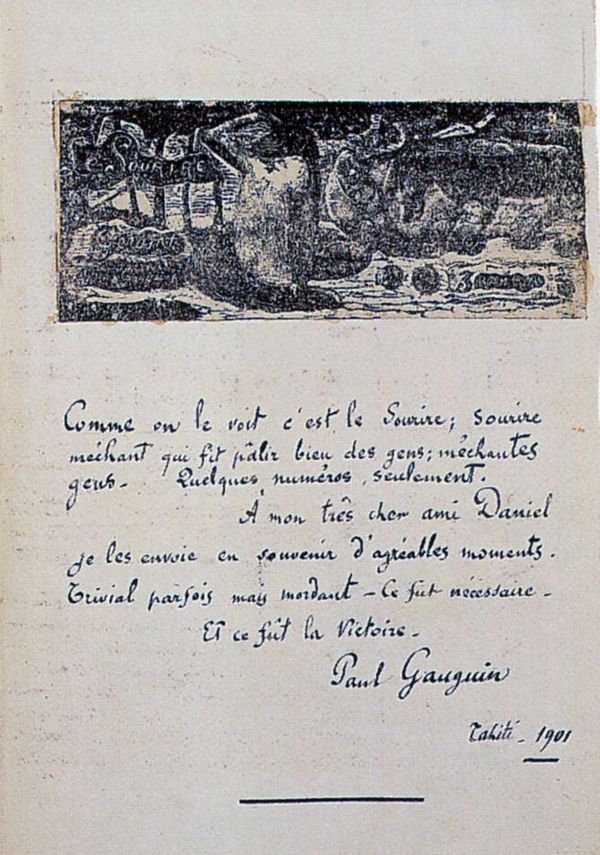 Le Sourire
Comme on le voit c'est le Sourire; sourire
méchant qui fit pâlir bien des gens; méchantes
gens. Quelques numéros, seulement.
À mon très cher ami Daniel
je les envoie en souvenir d'agréables moments.
Trivial parfois mais mordant – Ce fut nécessaire –
Et ce fût la Victoire –
Paul Gauguin
Tahiti – 1901